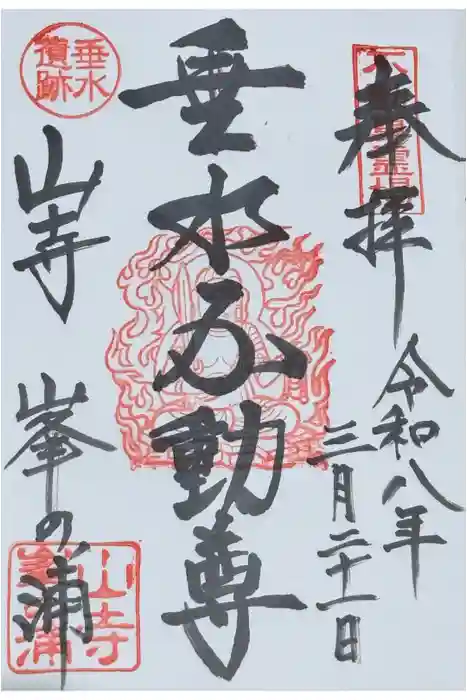 奉拝
令和八年
三月二十一日
垂水不動尊
山寺
峯の浦
垂水
遺跡
山寺
峯の浦